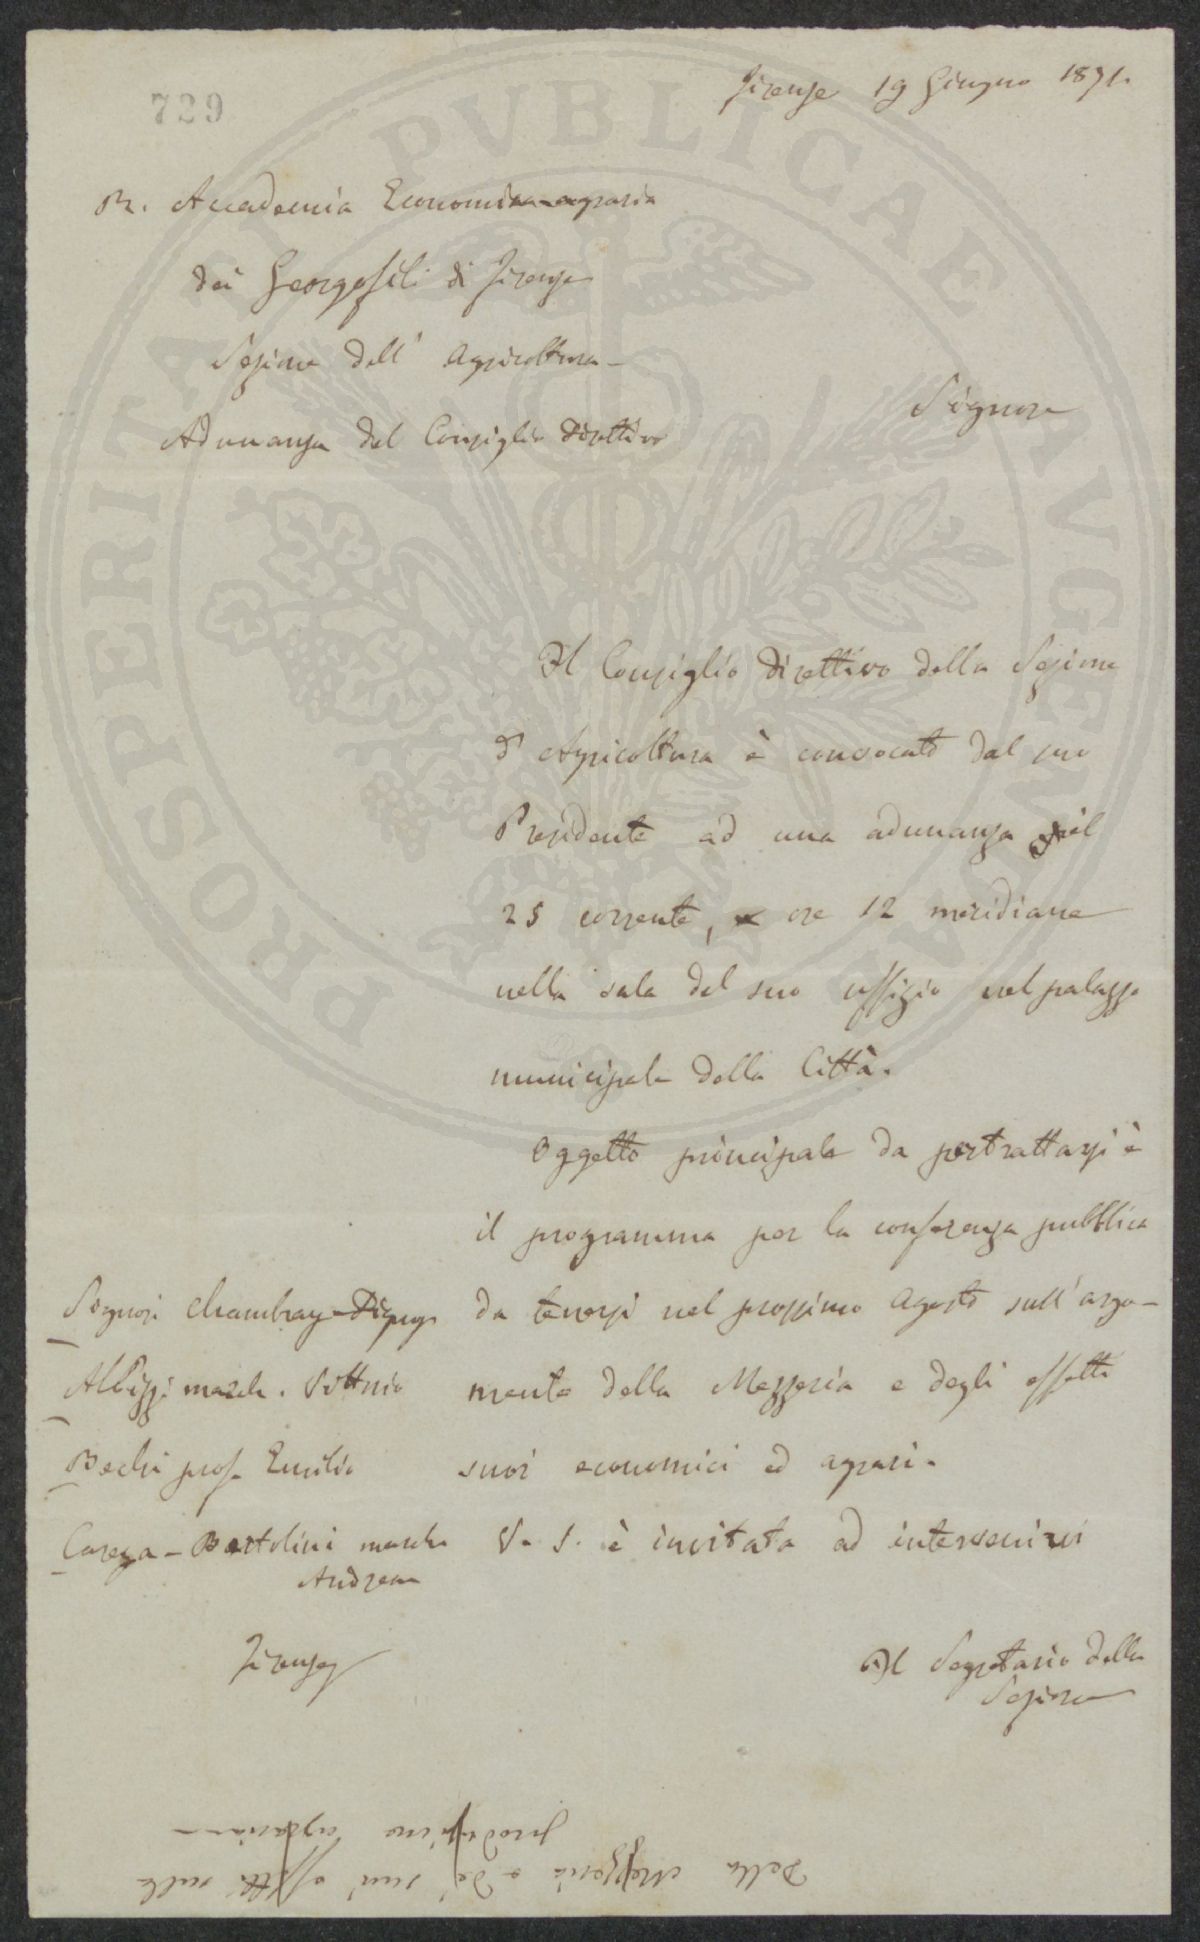 729
Firenze 19 Giugno 1871.
R. Accademia Economico-agraria
dei Georgofili di Firenze
Sezione dell' Agricoltura -
Adunanza del Consiglio Direttivo
Signore
Il Consiglio Direttivo della Sezione
d' Agricoltura è convocato dal suo
Presidente ad una adunanza pel
25 corrente, ore 12 meridiane
nella sala del suo uffizio nel palazzo
municipale della Città.
Oggetto principale da pertrattarsi è
il programma per la conferenza pubblica
da tenersi nel prossimo Agosto sull' argo-
mento della Mezzeria e degli effetti
suoi economici ed agrari.
V. S. è invitata ad intervenirvi
Signori Chambray-Digny
Albizzi march. Vittorio
Bechi prof. Emilio
Carega-Bertolini march.
Andrea
Firenze
Il Segretario della
Sezione
Della Mezzeria e de' suoi effetti sulla
produzione agraria
PROSPERITATI PVBLICAE AVGENDAE